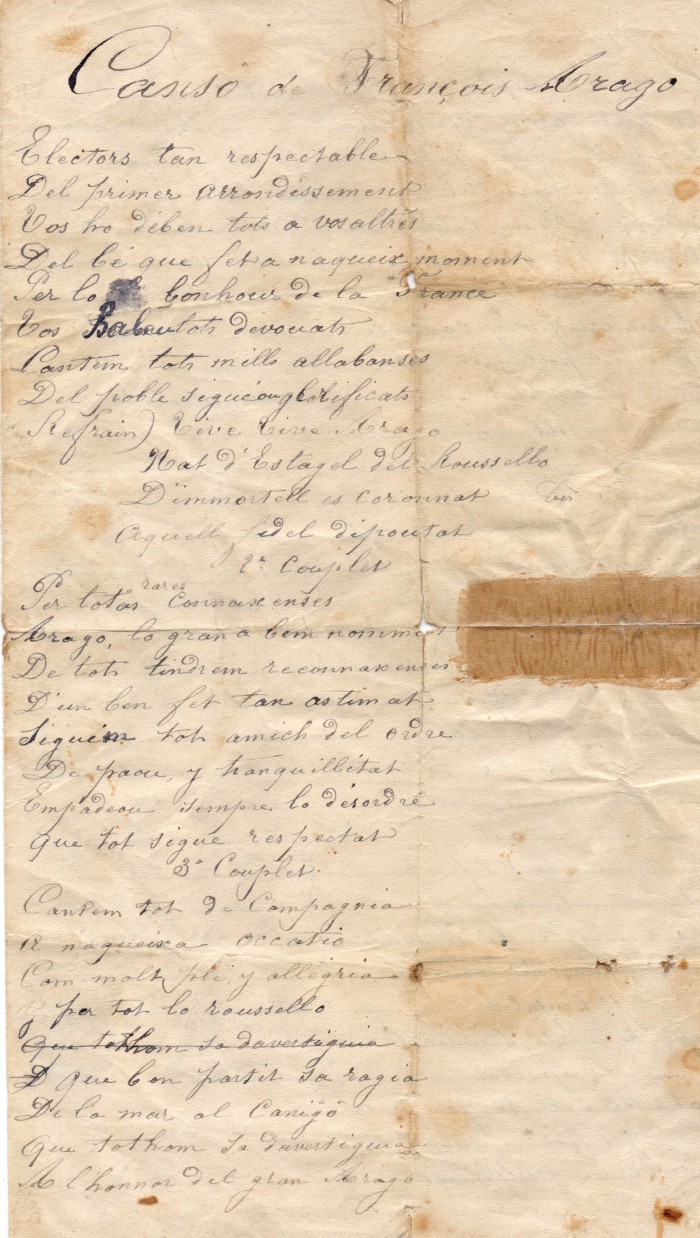 Cansó de François Arago
Electors tan respectable
Del primer arrondissement
Vos ho dében tots a vosaltres
Del bé que fet a naqueix moment
Per lo bonhour de la France
Vos tots devouats
Cantem tots mills allabanses
Del poble siguéou glorificats
Refrain) Vive Vive Arago
Nat d'Estagel del Roussello
D'immortell es coronnat bis
Aquell fidel dipoutat
2e Couplet
Per totas rares connaxenses
Arago, lo gran a bem nommat
De tots tindrem reconnaxenses
D'un ben fet tan astimat
Siguém tot amich del ordre
De paou, y tranquillitat
Empadeou sempre lo désordre
que tot sigue respectat
3e Couplet
Cantem tot de Compagnia
A naqueixa occatio
Com molt pli y allegria
per tot lo roussello
Que tothom sa davertiguia
D que bon partit sa ragia
De la mar al Canigó
Que tothom sa davertiguia
A l'honnor del gran Arago